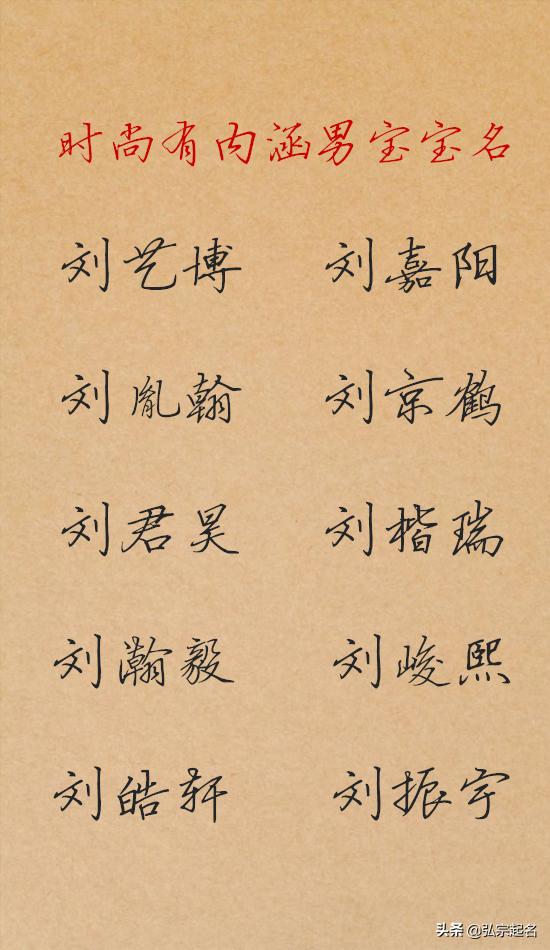 时尚有内涵男宝宝名
刘艺博 刘嘉阳
刘胤翰 刘京鹤
刘君昊 刘楷瑞
刘瀚毅 刘峻熙
刘皓轩 刘振宇
头条 @弘宗起名